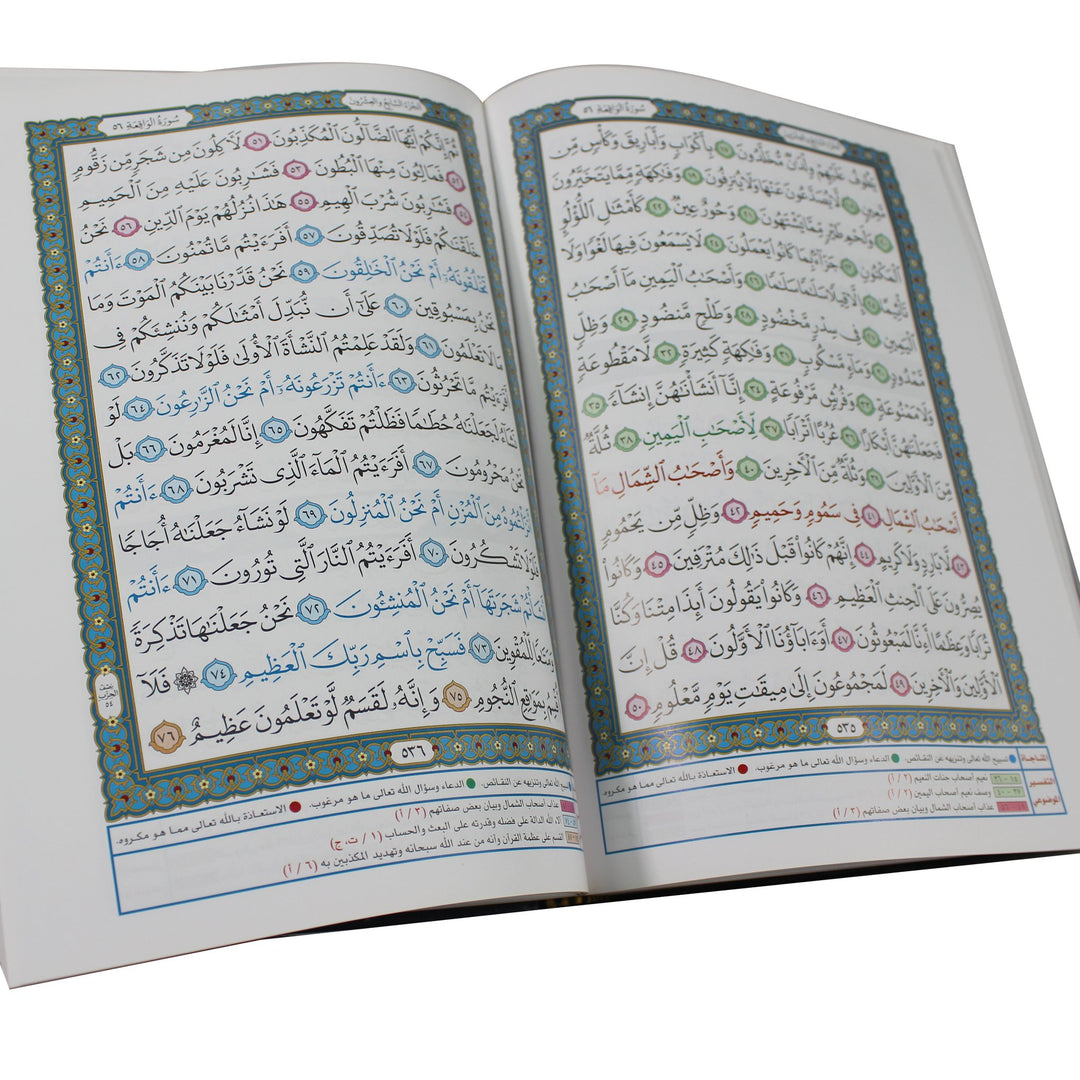 سُورَةُ الوَاقِعَةِ ٥٦
الجزء السابع والعشرون
يَطُوفُ عَلَيْهِمْ وِلْدَٰنٌ مُّخَلَّدُونَ ١٧ بِأَكْوَابٍ وَأَبَارِيقَ وَكَأْسٍ مِّن
مَّعِينٍ ١٨ لَّا يُصَدَّعُونَ عَنْهَا وَلَا يُنزِفُونَ ١٩ وَفَٰكِهَةٍ مِّمَّا يَتَخَيَّرُونَ
٢٠ وَلَحْمِ طَيْرٍ مِّمَّا يَشْتَهُونَ ٢١ وَحُورٌ عِينٌ ٢٢ كَأَمْثَٰلِ ٱللُّؤْلُؤِ
ٱلْمَكْنُونِ ٢٣ جَزَآءًۢ بِمَا كَانُوا۟ يَعْمَلُونَ ٢٤ لَا يَسْمَعُونَ فِيهَا لَغْوًا وَلَا
تَأْثِيمًا ٢٥ إِلَّا قِيلًا سَلَٰمًا سَلَٰمًا ٢٦ وَأَصْحَٰبُ ٱلْيَمِينِ مَآ أَصْحَٰبُ
ٱلْيَمِينِ ٢٧ فِى سِدْرٍ مَّخْضُودٍ ٢٨ وَطَلْحٍ مَّنضُودٍ ٢٩ وَظِلٍّ
مَّمْدُودٍ ٣٠ وَمَآءٍ مَّسْكُوبٍ ٣١ وَفَٰكِهَةٍ كَثِيرَةٍ ٣٢ لَّا مَقْطُوعَةٍ
وَلَا مَمْنُوعَةٍ ٣٣ وَفُرُشٍ مَّرْفُوعَةٍ ٣٤ إِنَّآ أَنشَأْنَٰهُنَّ إِنشَآءً ٣٥
فَجَعَلْنَٰهُنَّ أَبْكَارًا ٣٦ عُرُبًا أَتْرَابًا ٣٧ لِّأَصْحَٰبِ ٱلْيَمِينِ ٣٨ ثُلَّةٌ
مِّنَ ٱلْأَوَّلِينَ ٣٩ وَثُلَّةٌ مِّنَ ٱلْءَاخِرِينَ ٤٠ وَأَصْحَٰبُ ٱلشِّمَالِ مَآ
أَصْحَٰبُ ٱلشِّمَالِ ٤١ فِى سَمُومٍ وَحَمِيمٍ ٤٢ وَظِلٍّ مِّن يَحْمُومٍ
٤٣ لَّا بَارِدٍ وَلَا كَرِيمٍ ٤٤ إِنَّهُمْ كَانُوا۟ قَبْلَ ذَٰلِكَ مُتْرَفِينَ ٤٥ وَكَانُوا۟
يُصِرُّونَ عَلَى ٱلْحِنثِ ٱلْعَظِيمِ ٤٦ وَكَانُوا۟ يَقُولُونَ أَئِذَا مِتْنَا وَكُنَّا
تُرَابًا وَعِظَٰمًا أَءِنَّا لَمَبْعُوثُونَ ٤٧ أَوَءَابَآؤُنَا ٱلْأَوَّلُونَ ٤٨ قُلْ إِنَّ
ٱلْأَوَّلِينَ وَٱلْءَاخِرِينَ ٤٩ لَمَجْمُوعُونَ إِلَىٰ مِيقَٰتِ يَوْمٍ مَّعْلُومٍ ٥٠
٥٣٥
المناجاة تسبيح الله تعالى وتنزيهه عن النقائص. الدعاء وسؤال الله تعالى ما هو مرغوب. الاستعاذة بالله تعالى مما هو مكروه.
التفسير الموضوعي
١٤ - ٢٦ نعيم أصحاب جنات النعيم (٢ / أ)
٢٧ - ٤٠ وصف نعيم أصحاب اليمين (٢ / أ)
عذاب أصحاب الشمال وبيان بعض صفاتهم (٣ / أ)
الجزء السابع والعشرون
سُورَةُ الوَاقِعَةِ ٥٦
ثُمَّ إِنَّكُمْ أَيُّهَا ٱلضَّآلُّونَ ٱلْمُكَذِّبُونَ ٥١ لَءَاكِلُونَ مِن شَجَرٍ مِّن زَقُّومٍ
٥٢ فَمَالِـُٔونَ مِنْهَا ٱلْبُطُونَ ٥٣ فَشَٰرِبُونَ عَلَيْهِ مِنَ ٱلْحَمِيمِ
٥٤ فَشَٰرِبُونَ شُرْبَ ٱلْهِيمِ ٥٥ هَٰذَا نُزُلُهُمْ يَوْمَ ٱلدِّينِ ٥٦ نَحْنُ
خَلَقْنَٰكُمْ فَلَوْلَا تُصَدِّقُونَ ٥٧ أَفَرَءَيْتُم مَّا تُمْنُونَ ٥٨ ءَأَنتُمْ
تَخْلُقُونَهُۥٓ أَمْ نَحْنُ ٱلْخَٰلِقُونَ ٥٩ نَحْنُ قَدَّرْنَا بَيْنَكُمُ ٱلْمَوْتَ وَمَا
نَحْنُ بِمَسْبُوقِينَ ٦٠ عَلَىٰٓ أَن نُّبَدِّلَ أَمْثَٰلَكُمْ وَنُنشِئَكُمْ فِى
مَا لَا تَعْلَمُونَ ٦١ وَلَقَدْ عَلِمْتُمُ ٱلنَّشْأَةَ ٱلْأُولَىٰ فَلَوْلَا تَذَكَّرُونَ ٦٢
أَفَرَءَيْتُم مَّا تَحْرُثُونَ ٦٣ ءَأَنتُمْ تَزْرَعُونَهُۥٓ أَمْ نَحْنُ ٱلزَّٰرِعُونَ ٦٤ لَوْ
نَشَآءُ لَجَعَلْنَٰهُ حُطَٰمًا فَظَلْتُمْ تَفَكَّهُونَ ٦٥ إِنَّا لَمُغْرَمُونَ ٦٦ بَلْ
نَحْنُ مَحْرُومُونَ ٦٧ أَفَرَءَيْتُمُ ٱلْمَآءَ ٱلَّذِى تَشْرَبُونَ ٦٨ ءَأَنتُمْ
أَنزَلْتُمُوهُ مِنَ ٱلْمُزْنِ أَمْ نَحْنُ ٱلْمُنزِلُونَ ٦٩ لَوْ نَشَآءُ جَعَلْنَٰهُ أُجَاجًا
فَلَوْلَا تَشْكُرُونَ ٧٠ أَفَرَءَيْتُمُ ٱلنَّارَ ٱلَّتِى تُورُونَ ٧١ ءَأَنتُمْ
أَنشَأْتُمْ شَجَرَتَهَآ أَمْ نَحْنُ ٱلْمُنشِـُٔونَ ٧٢ نَحْنُ جَعَلْنَٰهَا تَذْكِرَةً
وَمَتَٰعًا لِّلْمُقْوِينَ ٧٣ فَسَبِّحْ بِٱسْمِ رَبِّكَ ٱلْعَظِيمِ ٧٤ ۞ فَلَآ
أُقْسِمُ بِمَوَٰقِعِ ٱلنُّجُومِ ٧٥ وَإِنَّهُۥ لَقَسَمٌ لَّوْ تَعْلَمُونَ عَظِيمٌ ٧٦
الحزب ٥٤
٥٣٦
تسبيح الله تعالى وتنزيهه عن النقائص. الدعاء وسؤال الله تعالى ما هو مرغوب. الاستعاذة بالله تعالى مما هو مكروه.
عذاب أصحاب الشمال وبيان بعض صفاتهم (٣ / أ)
آلاء الله الدالة على فضله وقدرته على البعث والحساب (١ / ت، ج)
القسم على عظمة القرآن وأنه من عند الله سبحانه وتهديد المكذبين به (٦ / أ)